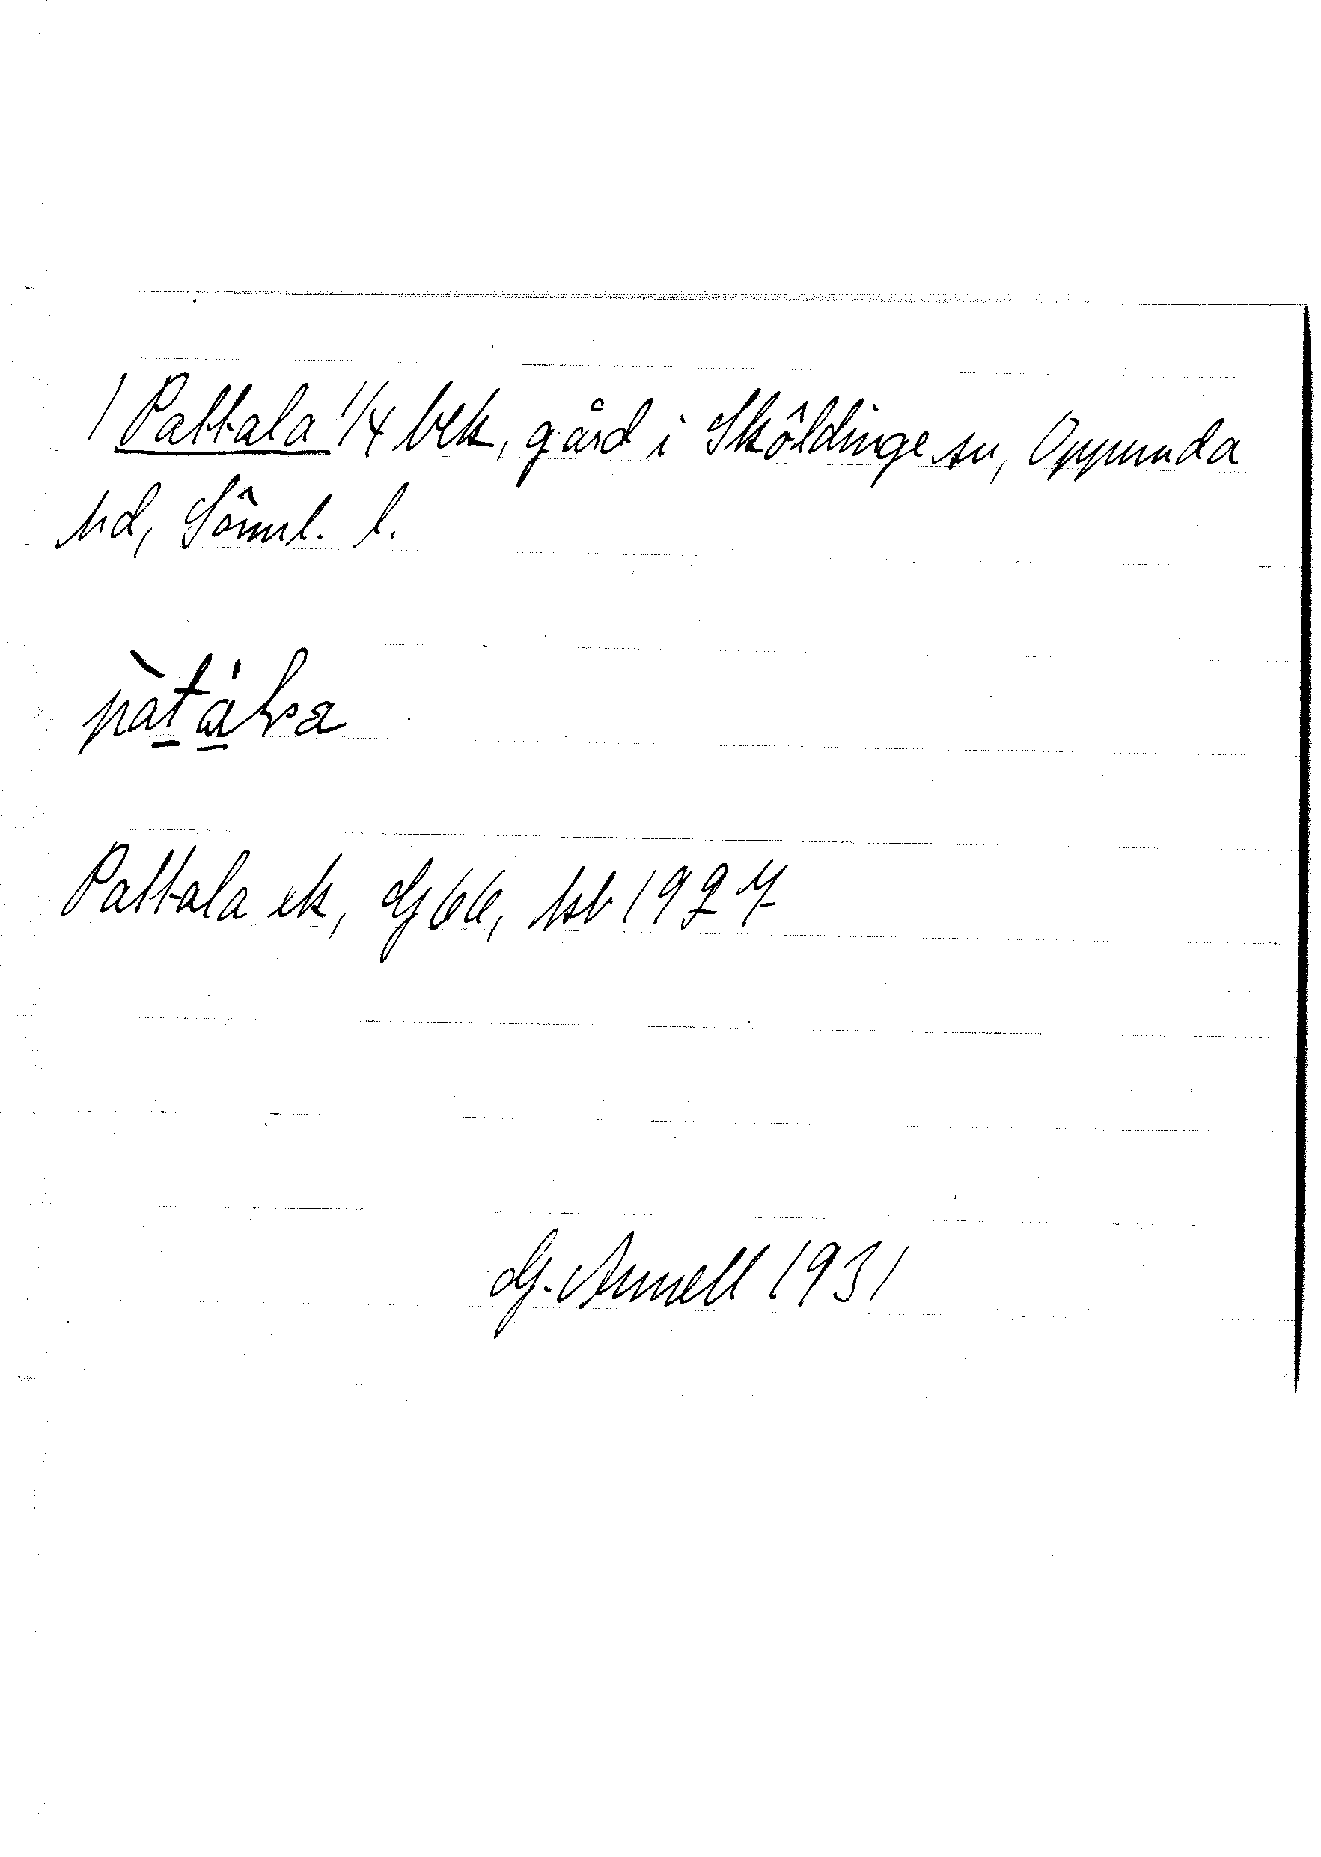 1 Pattala 1/4 bek, gård i Sköldinge sn, Oppunda
hd, Sörml. l.
pàtá
Pattala ek, Gj 66, hsb 1927
G. Annell 1931